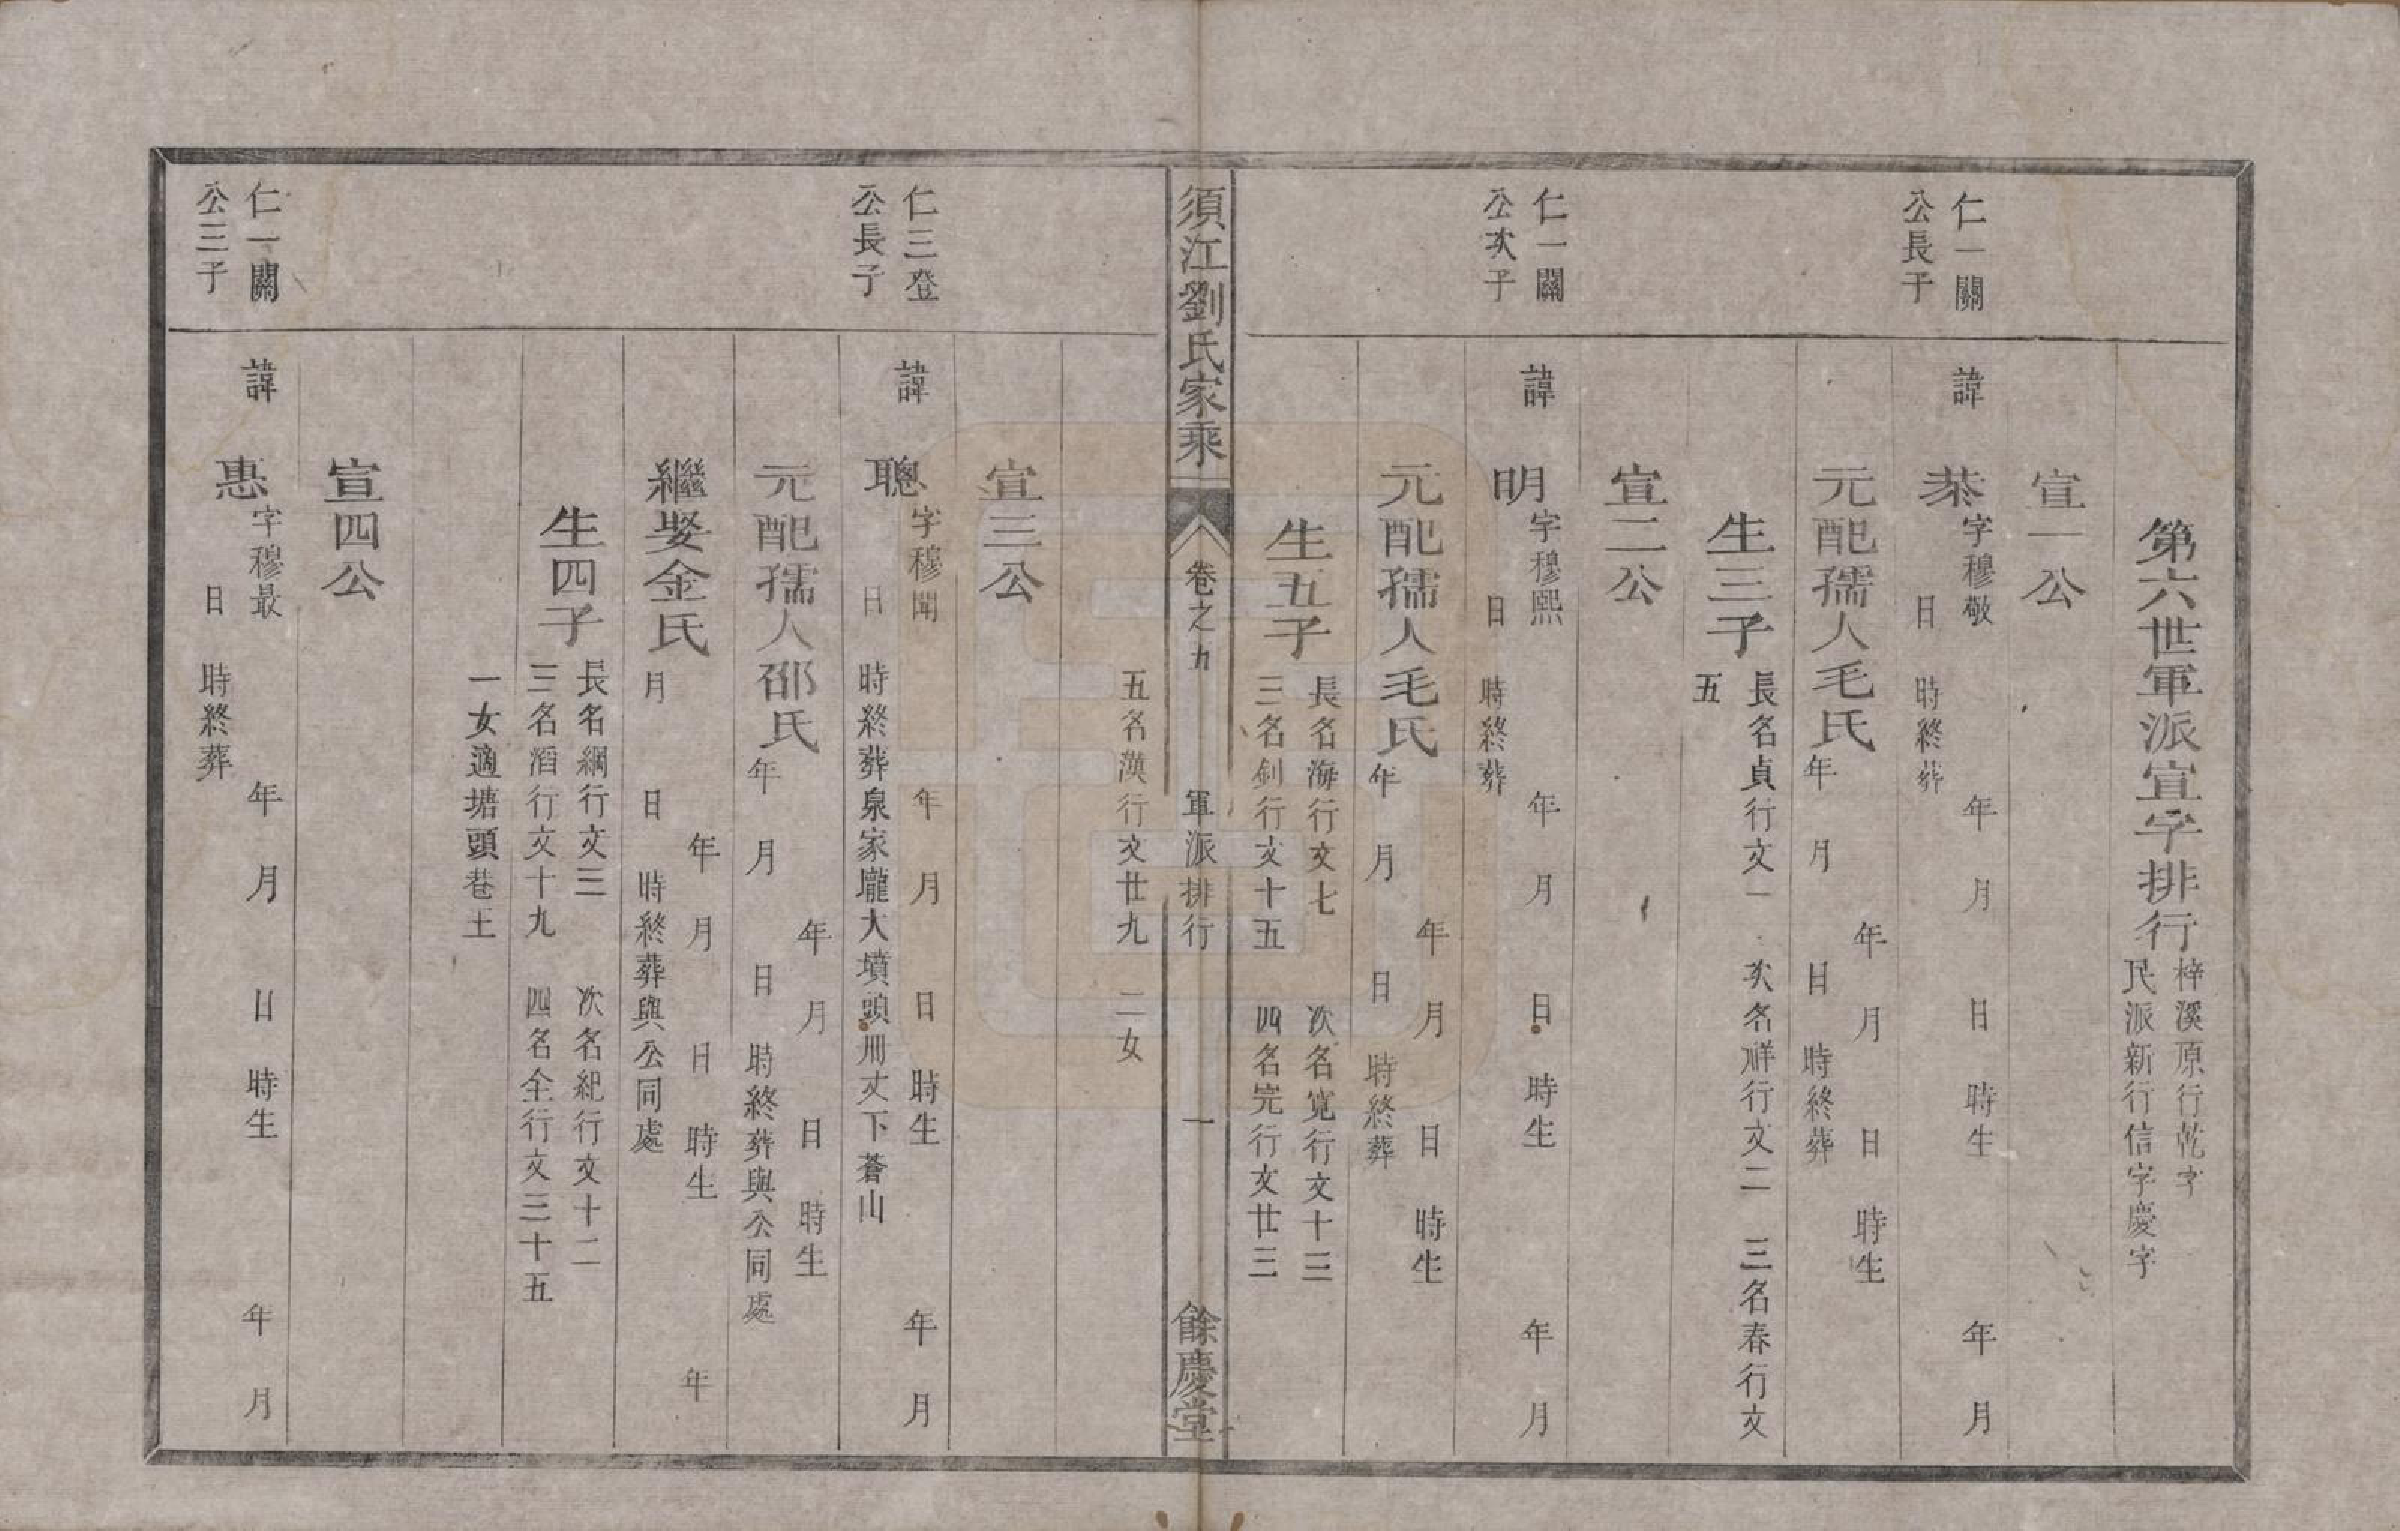 第六世軍派宣字排行
梓溪原行乾字
民派新行信字慶字
宣一公
仁一關
公長子
諱
恭
字穆敬
年月日時生
年月
日時終葬
元配孺人毛氏
年月日時生
年月日時終葬
生三子
長名貞行文一
次名祥行文二
三名春行文
五
宣二公
仁一關
公次子
諱
明
字穆熙
年月日時生
年月
日時終葬
元配孺人毛氏
年月日時生
年月日時終葬
生五子
長名海行文七
次名寬行文十三
三名釗行文十五
四名完行文廿三
須江劉氏家乘
卷之九
軍派排行
一
餘慶堂
五名漢行文廿九
二女
宣三公
仁三登
公長子
諱
聰
字穆聞
年月日時生
年月
日時終葬泉家壠大墳頭卅丈下蒼山
元配孺人邵氏
年月日時生
年月日時終葬與公同處
繼娶金氏
年月日時生
年
月日時終葬與公同處
生四子
長名綱行文三
次名紀行文十二
三名滔行文十九
四名全行文三十五
一女適塘頭巷王
宣四公
仁一關
公三子
諱
惠
字穆最
年月日時生
年月
日時終葬